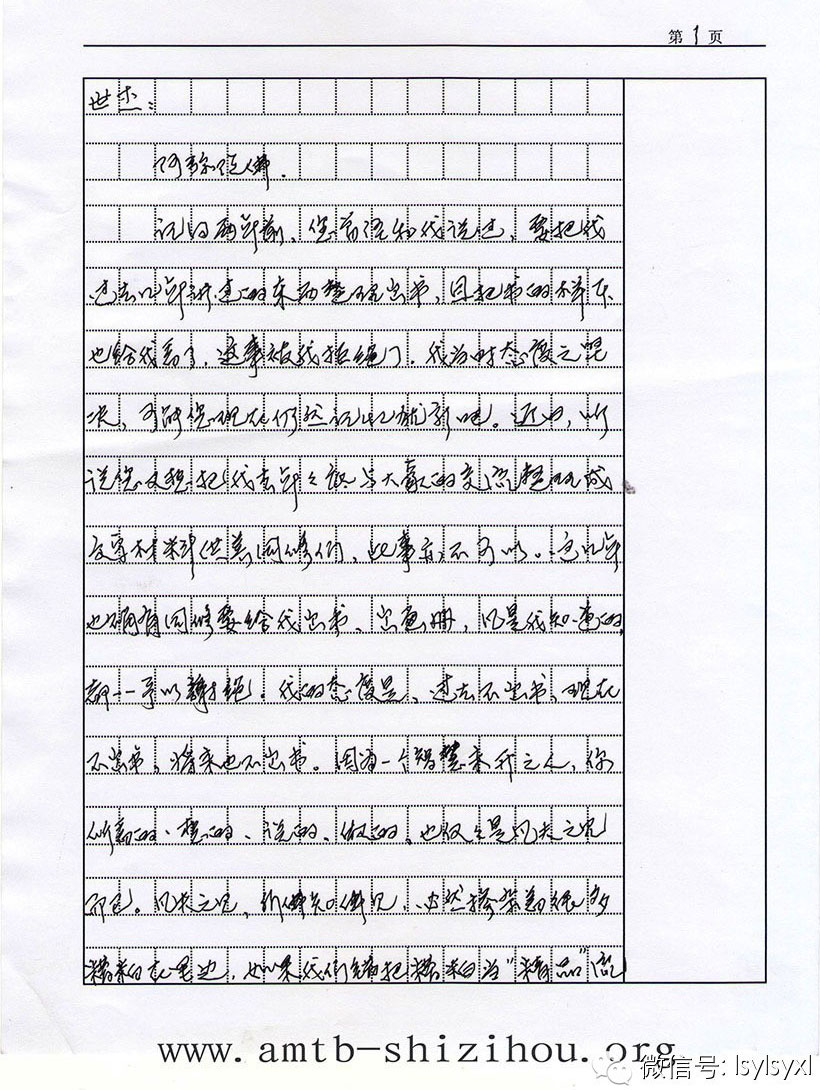 第1页
世杰:
阿弥陀佛.
记的两年前、您曾经和我说过,要把我
过去几年讲过的东西整理出书,且把书的样本
也给我看了,这事被我拒绝了.我当时态度之坚
决,可能您现在仍然记忆犹新吧。近日,听
说您又想把我去年年底与大家的交流整理成
文字材料供养同修们,此事亦不可以。这几年
也确有同修要给我出书、出画册,凡是我知道的,
都一一予以谢绝.我的态度是,过去不出书,现在
不出书,将来也不出书。因为一个智慧未开之人,你
所看的、想的、说的、做的,也仅仅是凡夫之见
而已。凡夫之见,非佛知佛见,必然掺杂着很多
糟粕在里边,如果我们错把糟粕当"精品"流
www.amtb-shizihou.org
微信号: lsylsyxl